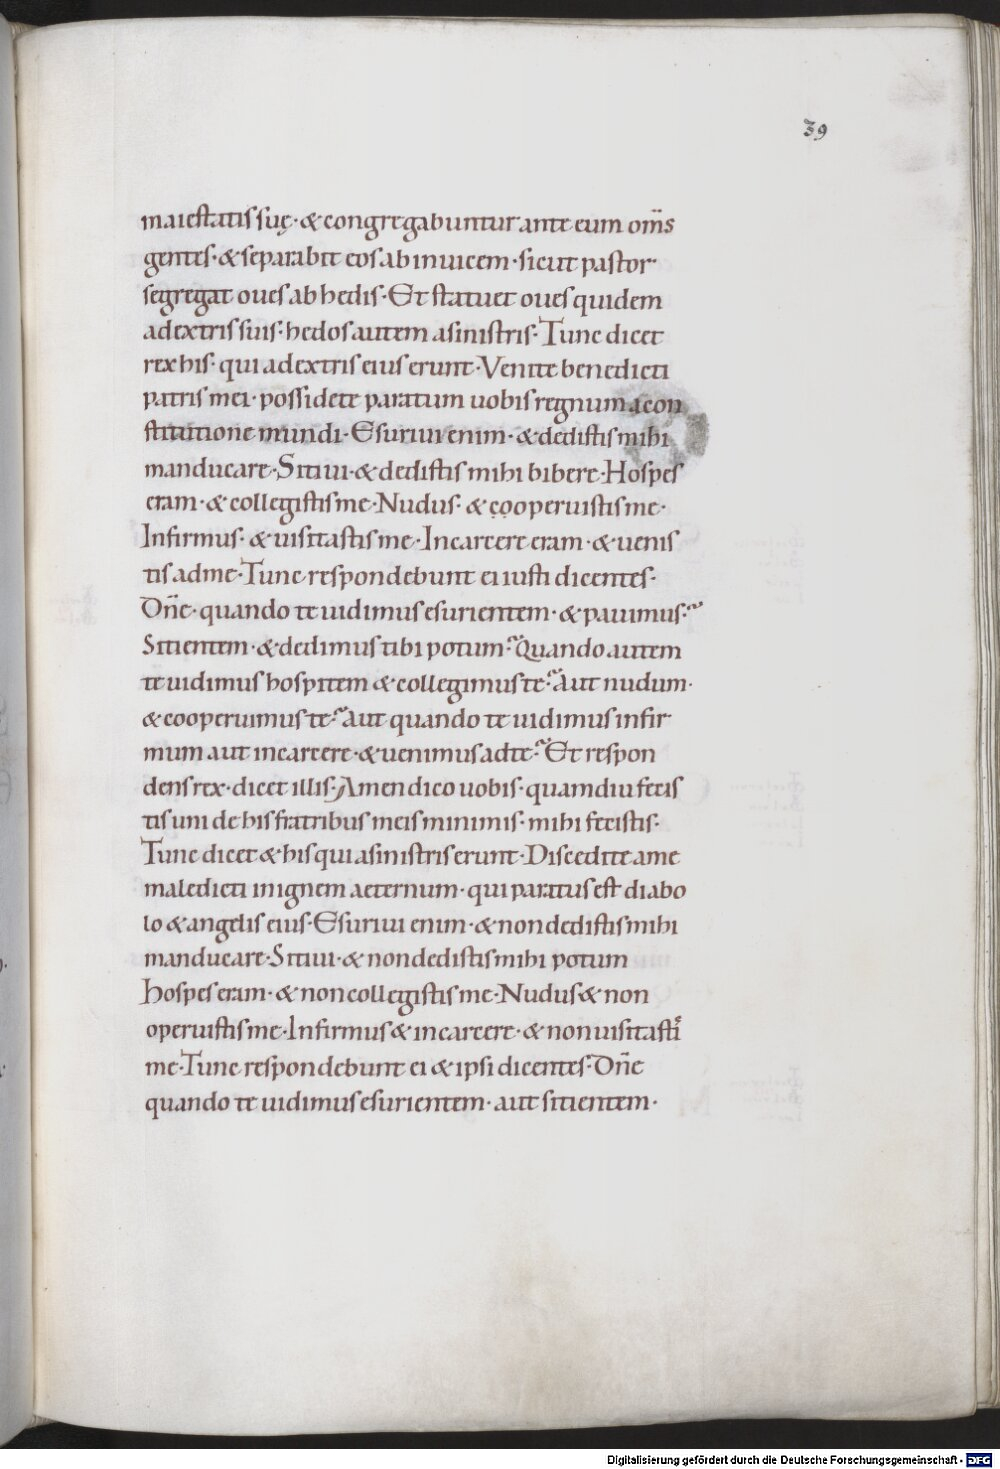 39
maiestatis suę· & congregabuntur ante eum om̅s
gentes· & separabit eos ab inuicem· sicut pastor
segregat oues ab hedis· Et statuet oues quidem
adextris suis· hedos autem asinistris· Tunc dicet
rex his· qui adextris eius erunt· Venite benedicti
patris mei· possidete paratum uobis regnum acon
stitutione mundi· Esuriui enim· & dedistis mihi
manducare· Sitiui· & dedistis mihi bibere· Hospes
eram· & collegistis me· Nudus· & cọọperuistis me·
Infirmus· & uisitastis me· Incarcere eram· & uenis
tis adme· Tunc respondebunt ei iusti dicentes·
Dn̅e· quando te uidimus esurientem· & pauimus·
Sitientem· & dedimus tibi potum· Quando autem
te uidimus hospitem & collegimus te· Aut nudum·
& cooperuimus te· Aut quando te uidimus infir
mum aut incarcere· & uenimus adte· Et respon
dens rex· dicet illis· Amen dico uobis· quamdiu fecis
tis uni de his fratribus meis minimis· mihi fecistis·
Tunc dicet & his qui asinistris erunt· Discedite ame
maledicti inignem aeternum· qui paratus est diabo
lo & angelis eius· Esuriui enim· & non dedistis mihi
manducare· Sitiui· & non dedistis mihi potum
hospes eram· & non collegistis me· Nudus & non
operuistis me· Infirmus & incarcere· & non uisitasti
me· Tunc respondebunt ei & ipsi dicentes· Dn̅e
quando te uidimus esurientem· aut sitientem·
Digitalisierung gefördert durch die Deutsche Forschungsgemeinschaft - DFG